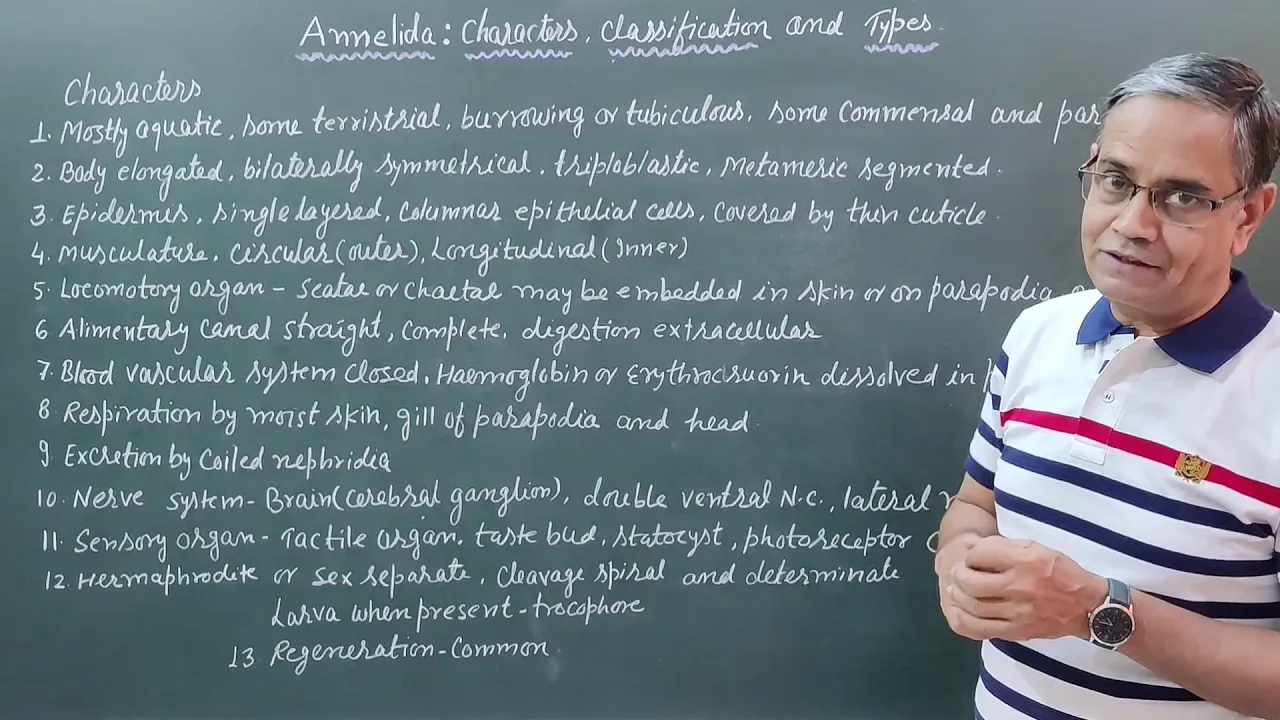 Annelida: Characters, Classification and Types
Characters
1. Mostly aquatic, some terristrial, burrowing or tubiculous, some Commensal and par
2. Body elongated, bilaterally symmetrical, triploblastic, Metameric segmented.
3. Epidermis, single layered, columnar epithelial cells, covered by thin cuticle.
4. Musculature, Circular (outer), Longitudinal (Inner)
5. Locomotory organ - Seatae or Chaetae may be embedded in skin or on parapodia
6 Alimentary canal straight, complete, digestion extracellular
7. Blood vascular system closed, Haemoglobin or Erythrocruorin dissolved in
8 Respiration by moist skin, gill of parapodia and head.
9 Excretion by Coiled nephridia
10. Nerve system - Brain (cerebral ganglion), double ventral N.C., lateral
11. Sensory organ - Tactile organ, taste bud, statocyst, photoreceptor
12. Hermaphrodite or Sex separate, Cleavage spiral and determinate
Larva when present - trocophore
13 Regeneration - Common